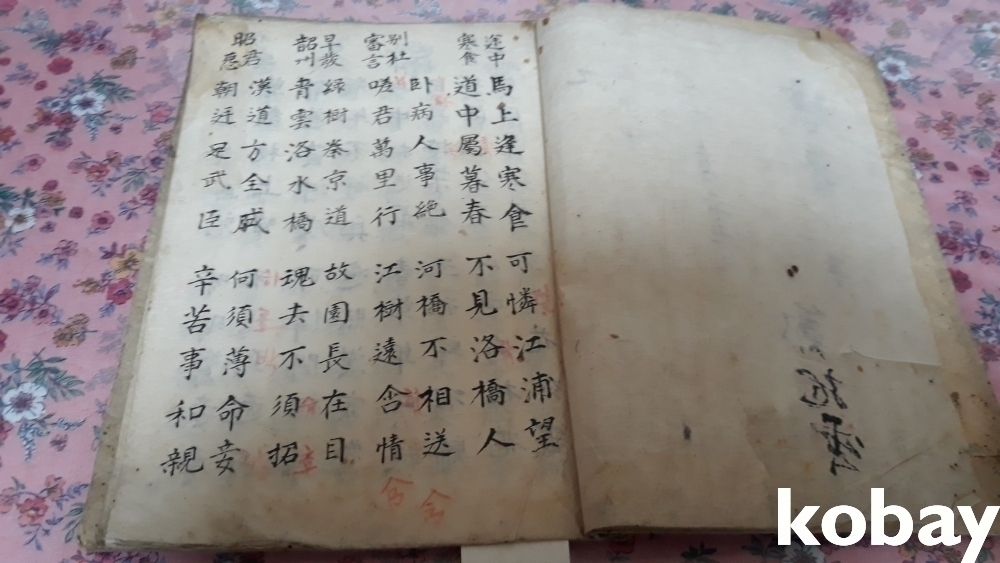 途中
寒食
馬上逢寒食 可憐江浦望
道中屬暮春 不見洛橋人
別杜
審言
卧病人事絶 河橋不相送
嗟君萬里行 江樹遠含情
早發
韶州
綠樹秦京道 故園長在目
青雲洛水橋 魂去不須招
昭君
怨
漢道方全盛 何須薄命妾
朝廷足武臣 辛苦事和親
kobay